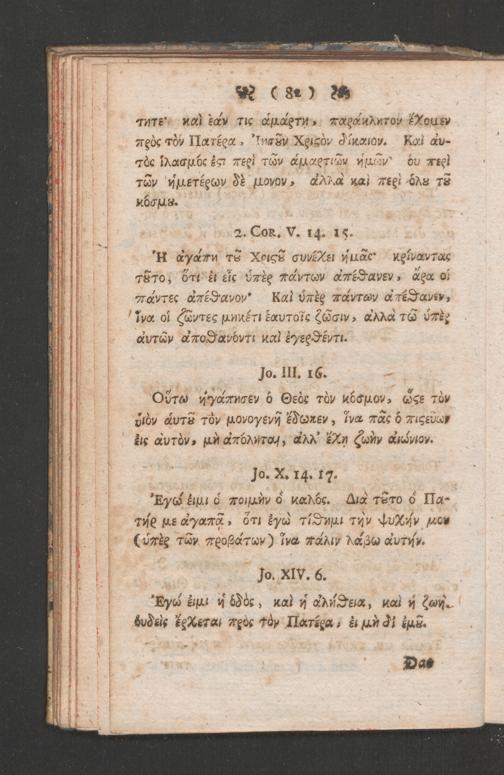 ( 82 )
τητε· καὶ ἐάν τις ἁμάρτῃ, παράκλητον ἔχομεν
πρὸς τὸν Πατέρα, Ἰησοῦν Χριϛὸν δίκαιον. Καὶ αὐ-
τὸς ἱλασμός ἐϛι περὶ τῶν ἁμαρτιῶν ἡμῶν· ὀυ περὶ
τῶν ἡμετέρων δὲ μονον, ἀλλὰ καὶ περὶ ὁλου τοῦ
κόσμου.
2. COR. V. 14. 15.
Ἡ ἀγάπη τοῦ Χριϛοῦ συνέχει ἡμᾶς· κρίναντας
τοῦτο, ὅτι ἐι εἷς ὑπὲρ πάντων ἀπέθανεν, ἄρα οἱ
πάντες ἀπέθανον· Καὶ ὑπὲρ πάντων ἀπέθανεν,
ἵνα οἱ ζῶντες μηκέτι ἑαυτοῖς ζῶσιν, ἀλλὰ τῶ ὑπὲρ
ἀυτῶν ἀποθανόντι καὶ ἐγερθέντι.
Jo. III. 16.
Οὕτω ἠγάπησεν ὁ Θεὸς τὸν κόσμον, ὥϛε τὸν
ὑιὸν ἁυτοῦ τὸν μονογενῆ ἔδωκεν, ἵνα πᾶς ὁ πιϛεύων
ἐις αὐτὸν, μὴ ἀπόληται, ἀλλ' ἔχῃ ζωὴν αἰώνιον.
Jo. X. 14. 17.
Ἐγώ ἐιμι ὁ ποιμὴν ὁ καλός. Διὰ τοῦτο ὁ Πα-
τήρ με ἀγαπᾷ, ὅτι ἐγὼ τίθημι τὴν ψυχήν μου
(ὑπὲρ τῶν προβάτων) ἵνα πάλιν λάβω αυτήν.
Jo. XIV. 6.
Ἐγώ ἐιμι ἡ ὁδὸς, καὶ ἡ ἀλήθεια, καὶ ἡ ζωή.
ὀυδεὶς ἔρχεται πρὸς τὸν Πατέρα, ἐι μὴ δἰ ἐμοῦ.
Das